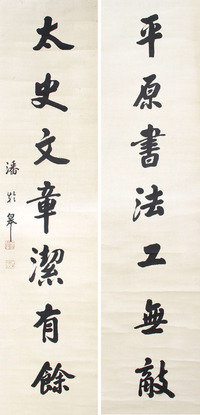 平原書法工無敵
太史文章潔有餘
潘齡皋